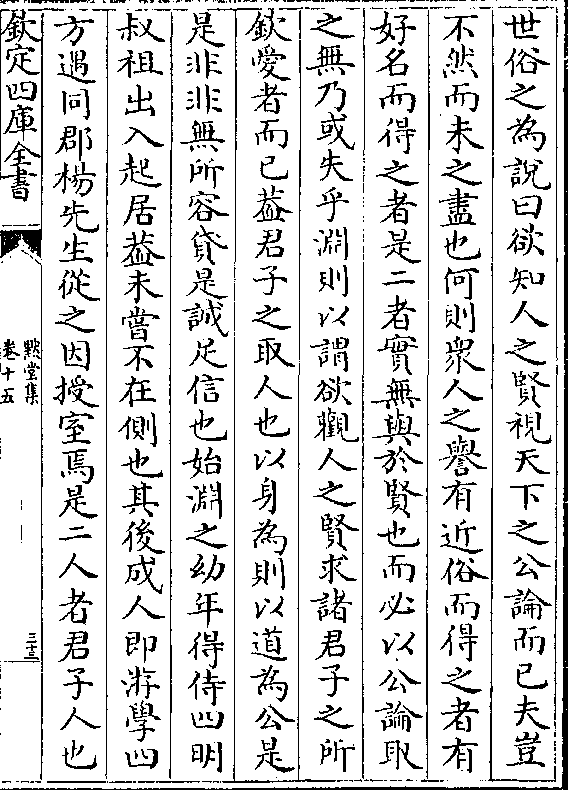 世俗之為說曰欲知人之賢視天下之公論而已夫豈
不然而未之盡也何則衆人之譽有近俗而得之者有
好名而得之者是二者實無與於賢也而必以公論取
之無乃或失乎淵則以謂欲觀人之賢求諸君子之所
欽愛者而已葢君子之取人也以身為則以道為公是
是非非無所容貸是誠足信也始淵之幼年得侍四明
叔祖出入起居葢未嘗不在側也其後成人即游學四
方遇同郡楊先生從之因授室焉是二人者君子人也
欽定四庫全書
默堂集
卷十五
三十三